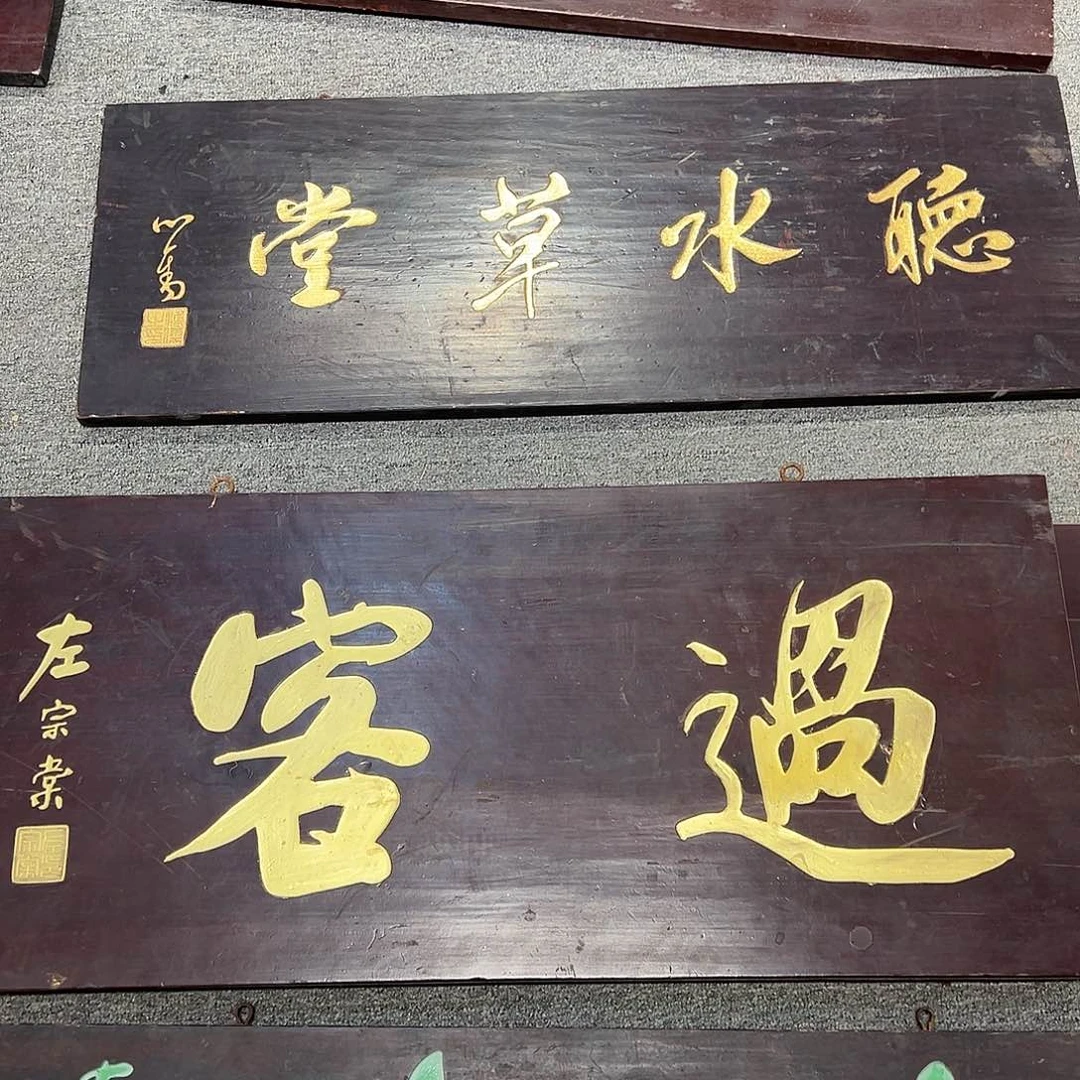 聽水草堂
心畬
過客
左宗棠